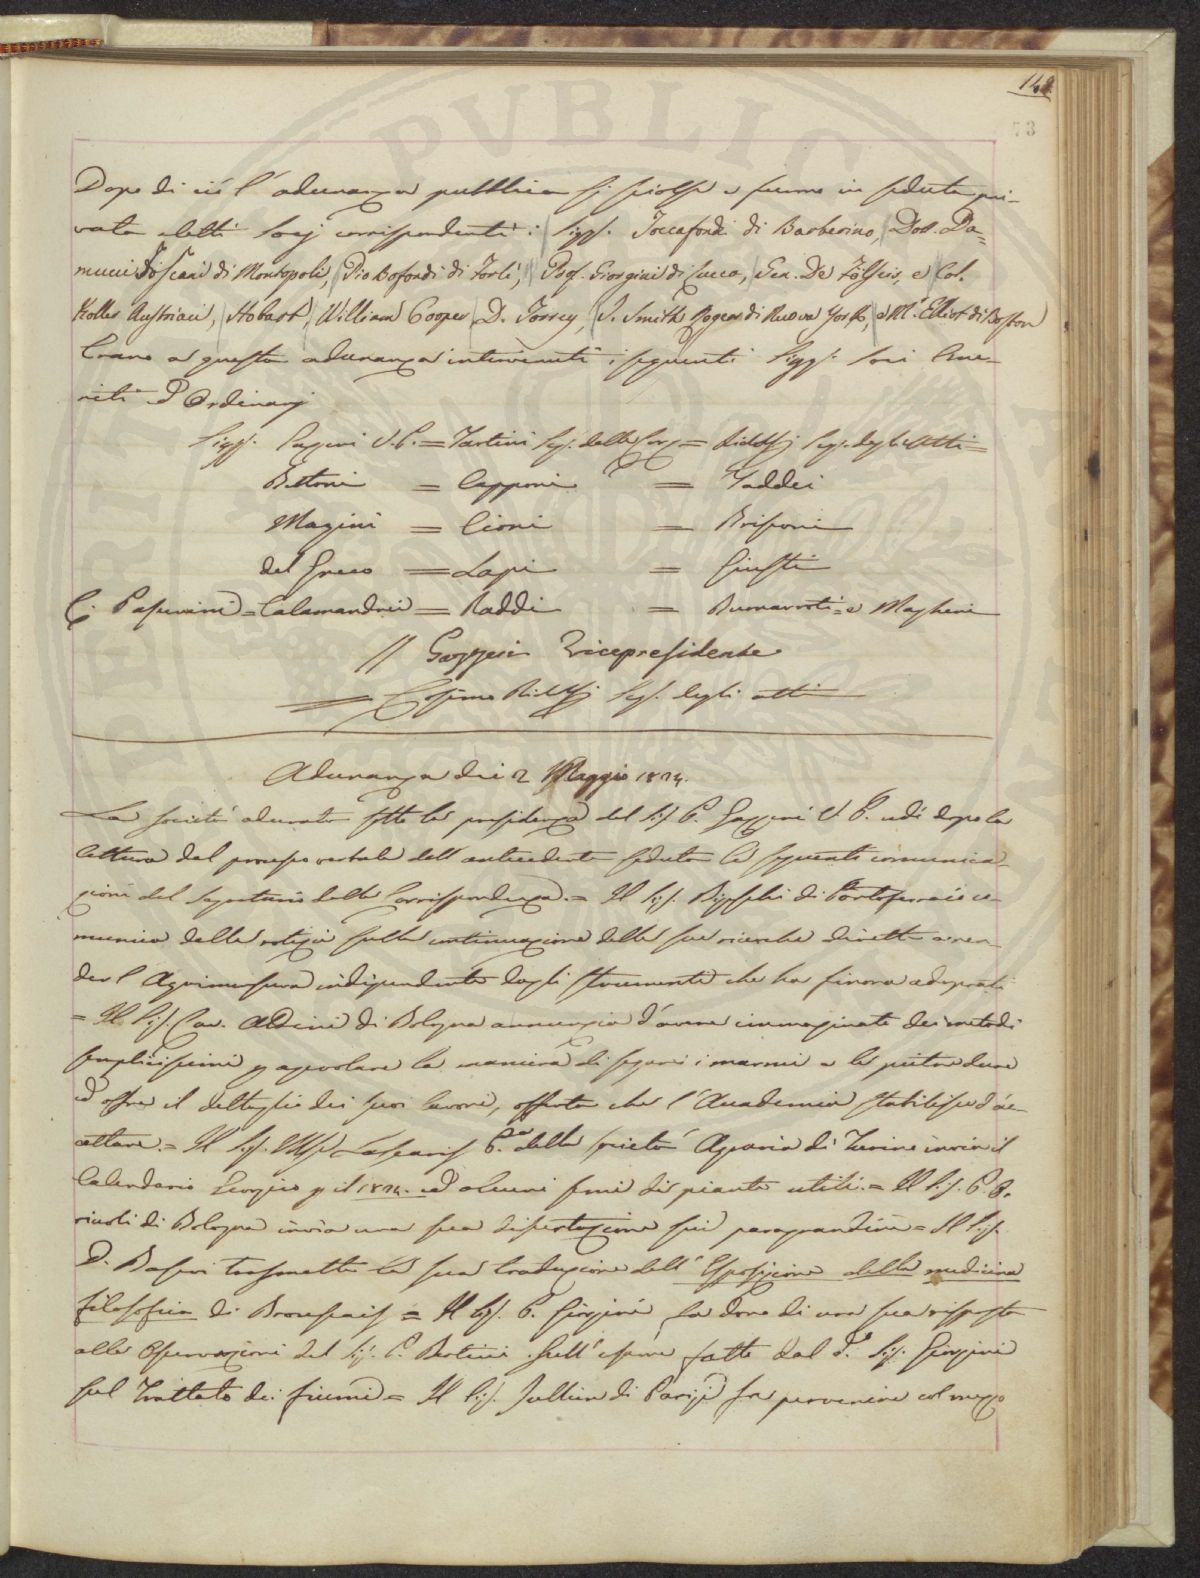 148
73
Dopo di ciò l'adunanza pubblica si sciolse e furono in seduta pri-
vata eletti Socj corrispondenti: Sigg. Toccafondi di Barberino, Dott. Da-
mucci Toscani di Montopoli, Pio Bofondi di Forlì, Prof. Giorgini di Lucca, Gen. De e Col.
Koller Austriaci, Hobart, William Cooper, D. Torrey, J. Smith Rogers di Nuova York, e Mr. Elliot di Boston
Erano a questa adunanza intervenuti i seguenti Sigg. Soci Eme-
riti ed Ordinarj
Sigg. Gazzeri V. P. = Tartini Seg. delle Corr. = Ridolfi Seg. degli Atti =
Bettoni = Capponi = Taddei
Mazini = Cioni = Brisoni
del Greco = Lapi = Giusti
C. Passerini = Calamandrei = Raddi = Buonarroti = e Magheri
// Gazzeri Vicepresidente
= Cosimo Ridolfi Seg. degli atti
Adunanza dei 2 Maggio 1824.
La società adunata sotto la presidenza del Sig. P. Gazzeri V. P. udì dopo la
lettura del processo verbale dell'antecedente seduta le seguenti comunica-
zioni del Segretario delle Corrispondenze. = Il Sig. di Portoferraio co-
munica delle notizie sulla continuazione delle sue ricerche dirette a ren-
der l'Agrimensura indipendente dagli strumenti che ha finora adoprati
= Il Sig. Cav. Aldini di Bologna annunzia d'avere immaginato dei metodi
semplicissimi p agevolare la maniera di segare i marmi e le pietre dure
ed offre il dettaglio dei suoi lavori, offerta che l'Accademia stabilisce d'ac-
cettare. = Il Sig. Mse Lascaris P.te della società Agraria di Torino invia il
Calendario Georgico p il 1824. ed alcuni semi di piante utili. = Il Sig. P. O-
rioli di Bologna invia una sua dissertazione sui paragrandini = Il Sig.
D. Basevi trasmette la sua traduzione dell'Esposizione della medicina
filosofica di Broussais = Il Sig. P. Giorgini fa dono di una sua risposta
alle Osservazioni del Sig. C. Bertini sull'esame fatto dal d.o Sig. Giorgini
sul Trattato dei fiumi = Il Sig. Jullien di Parigi fa pervenire col mezzo